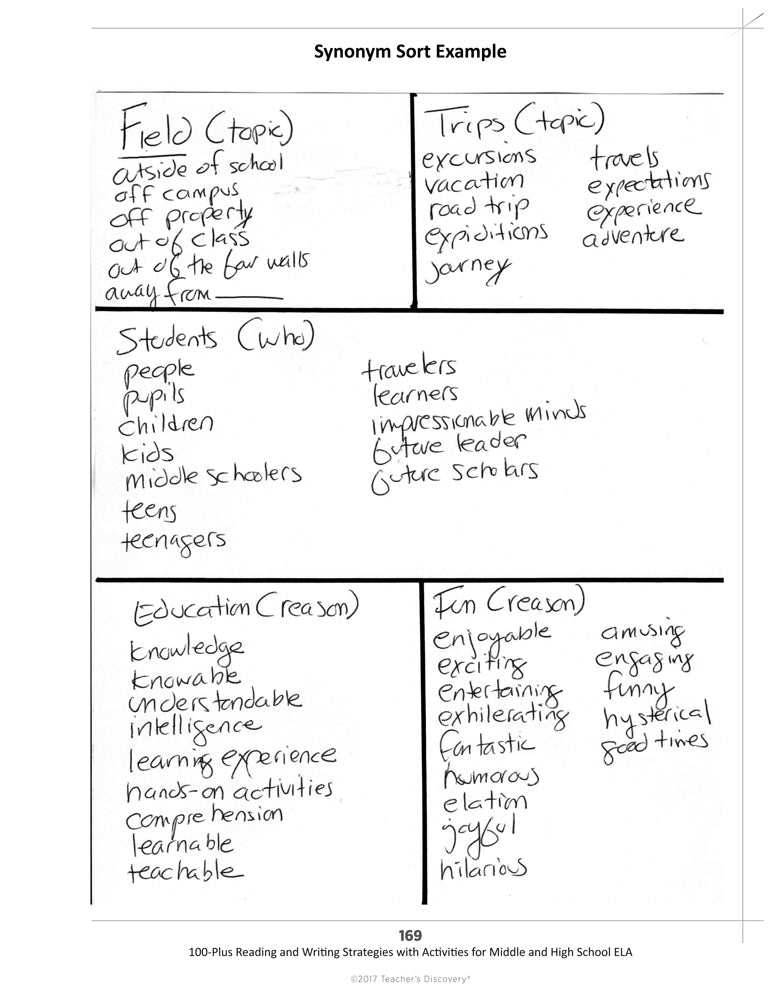 Synonym Sort Example
Field (topic)
outside of school
off campus
off property
out of class
out of the four walls
away from ______
Trips (topic)
excursions
vacation
road trip
expiditions
journey
travels
expectations
experience
adventure
Students (who)
people
pupils
children
kids
middle schoolers
teens
teenagers
travelers
learners
impressionable minds
future leader
future scholars
Education (reason)
knowledge
knowable
understandable
intelligence
learning experience
hands-on activities
comprehension
learnable
teachable
Fun (reason)
enjoyable
exciting
entertaining
exhilerating
fantastic
humorous
elation
joyful
hilarious
amusing
engaging
funny
hysterical
good times
169
100-Plus Reading and Writing Strategies with Activities for Middle and High School ELA
©2017 Teacher's Discovery®